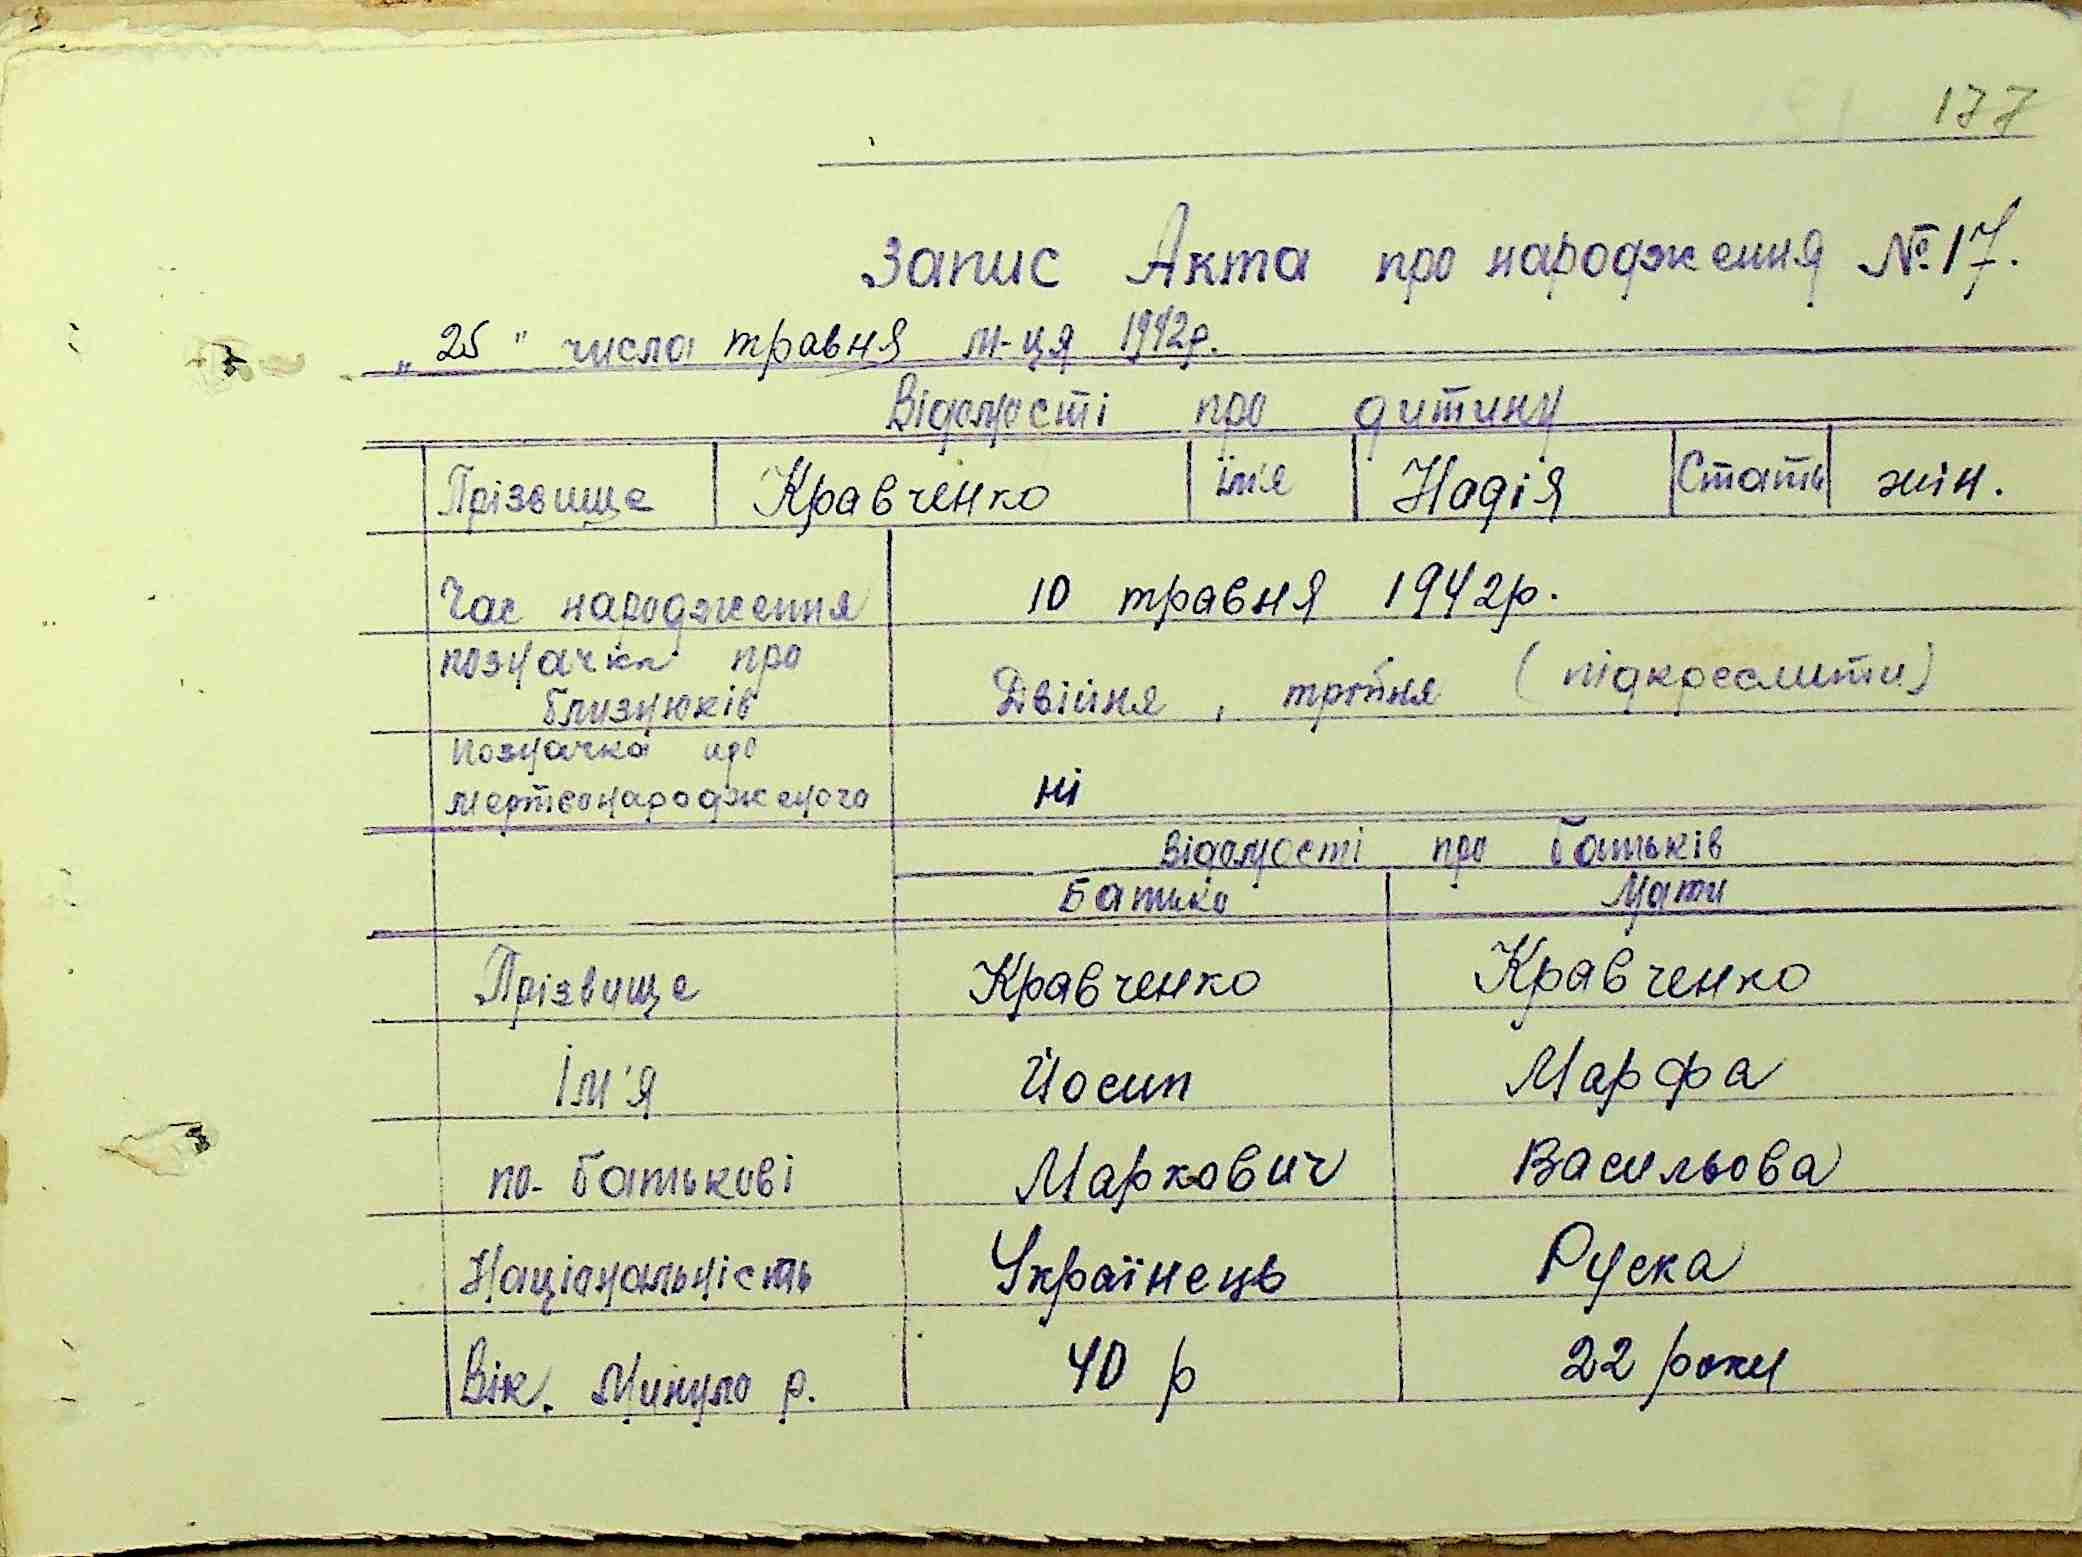 177
Запис Акта про народження №17.
„25" числа травня м-ця 1942р.
Відомості про дитину
Прізвище Кравченко Ім'я Надія Стать жін.
Час народження 10 травня 1942р.
позначка про
близнюків Двійня, тройня (підкреслити)
позначка про
мертвонародженого ні
Відомості про батьків
Батько Мати
Прізвище Кравченко Кравченко
Ім'я Йосип Марфа
по-батькові Маркович Васильова
Національність Українець Руска
Вік. Минуло р. 40 р 22 роки